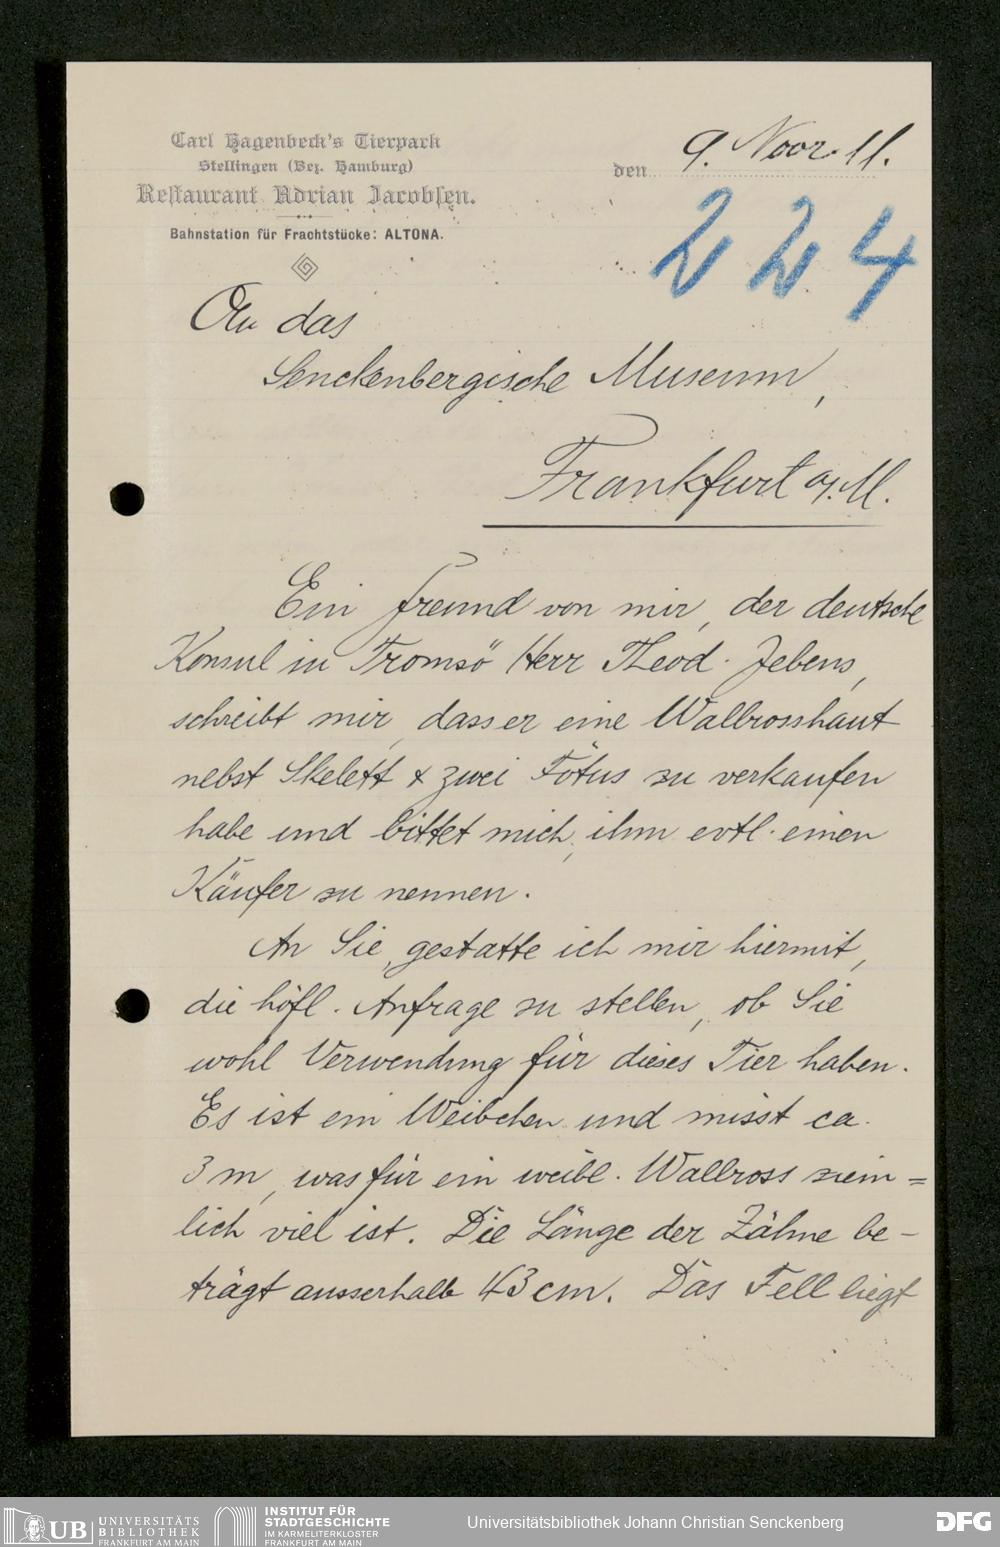 Carl Hagenbeck's Tierpark
Stellingen (Bez. Hamburg)
Restaurant Adrian Jacobsen.
Bahnstation für Frachtstücke: ALTONA.
den 9. Novr. 11.
224
An das
Senckenbergische Museum,
Frankfurt a/M.
Ein Freund von mir, der deutsche
Konsul in Tromsö Herr Theod. Jebens,
schreibt mir, dass er eine Walbrosshaut
nebst Skelett & zwei Fötus zu verkaufen
habe und bittet mich, ihm evtl. einen
Käufer zu nennen.
An Sie, gestatte ich mir hiermit,
die höfl. Anfrage zu stellen, ob Sie
wohl Verwendung für dieses Tier haben.
Es ist ein Weibchen und misst ca.
3 m, was für ein weibl. Wallross ziem=
lich viel ist. Die Länge der Zähne be-
trägt ausserhalb 43 cm. Das Fell liegt
UB UNIVERSITÄTS
BIBLIOTHEK
FRANKFURT AM MAIN
INSTITUT FÜR
STADTGESCHICHTE
IM KARMELITERKLOSTER
FRANKFURT AM MAIN
Universitätsbibliothek Johann Christian Senckenberg
DFG